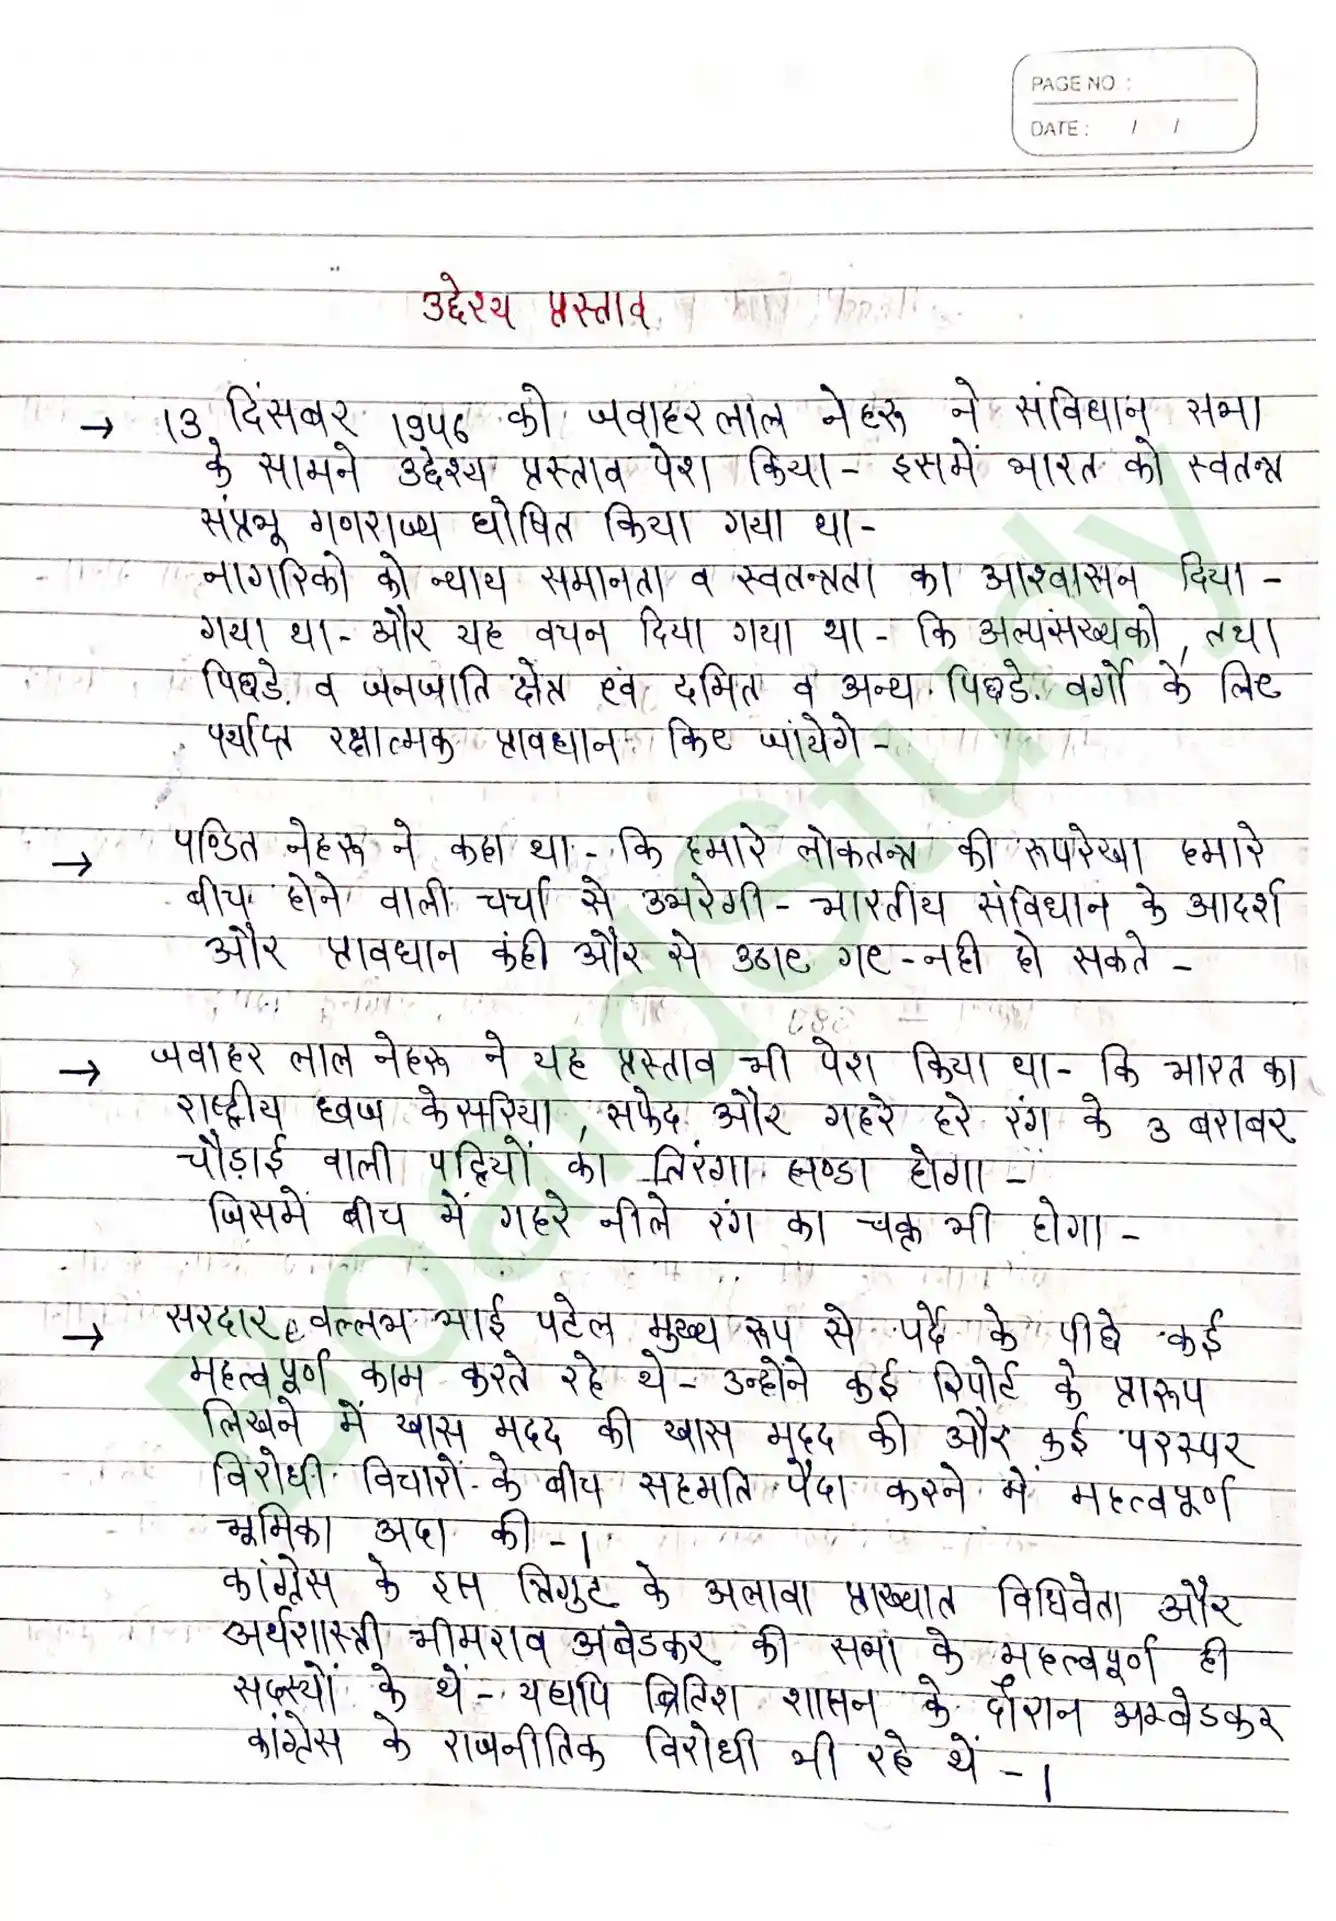 PAGE NO. :
DATE : / /
उद्देश्य प्रस्ताव
→ 13 दिंसबर 1946 को जवाहर लाल नेहरू ने संविधान सभा
के सामने उद्देश्य प्रस्ताव पेश किया - इसमें भारत को स्वतन्त्र
संप्रभू गणराज्य घोषित किया गया था -
नागरिको को न्याय समानता व स्वतन्त्रता का आश्वासन दिया -
गया था - और यह वचन दिया गया था - कि अल्पसंख्यको, तथा
पिछडे व जनजाति क्षेत्र एवं दमित व अन्य पिछडे वर्गो के लिए
पर्याप्त रक्षात्मक प्रावधान किए जांयेगे -
→ पण्डित नेहरू ने कहा था - कि हमारे लोकतन्त्र की रूपरेखा हमारे
बीच होने वाली चर्चा से उभरेगी - भारतीय संविधान के आदर्श
और प्रावधान कंही और से उठाए गए - नही हो सकते -
→ जवाहर लाल नेहरू ने यह प्रस्ताव भी पेश किया था - कि भारत का
राष्ट्रीय ध्वज केसरिया, सफेद और गहरे हरे रंग के 3 बराबर
चौड़ाई वाली पट्टियों का तिरंगा झण्डा होगा -
जिसमें बीच में गहरे नीले रंग का चक्र भी होगा -
→ सरदार वल्लभ भाई पटेल मुख्य रूप से पर्दे के पीछे कई
महत्वपूर्ण काम करते रहे थे - उन्होंने कई रिपोर्ट के प्रारूप
लिखने में खास मदद की खास मदद की और कई परस्पर
विरोधी विचारों के बीच सहमति पैदा करने में महत्वपूर्ण
भूमिका अदा की - ।
कांग्रेस के इस त्रिगुट के अलावा प्राख्यात विधिवेता और
अर्थशास्त्री भीमराव अबेडकर की सभा के महत्वपूर्ण ही
सदस्यों के थें - यद्यपि ब्रिटिश शासन के दौरान अम्बेडकर
कांग्रेस के राजनीतिक विरोधी भी रहे थें - ।
BoardStudy